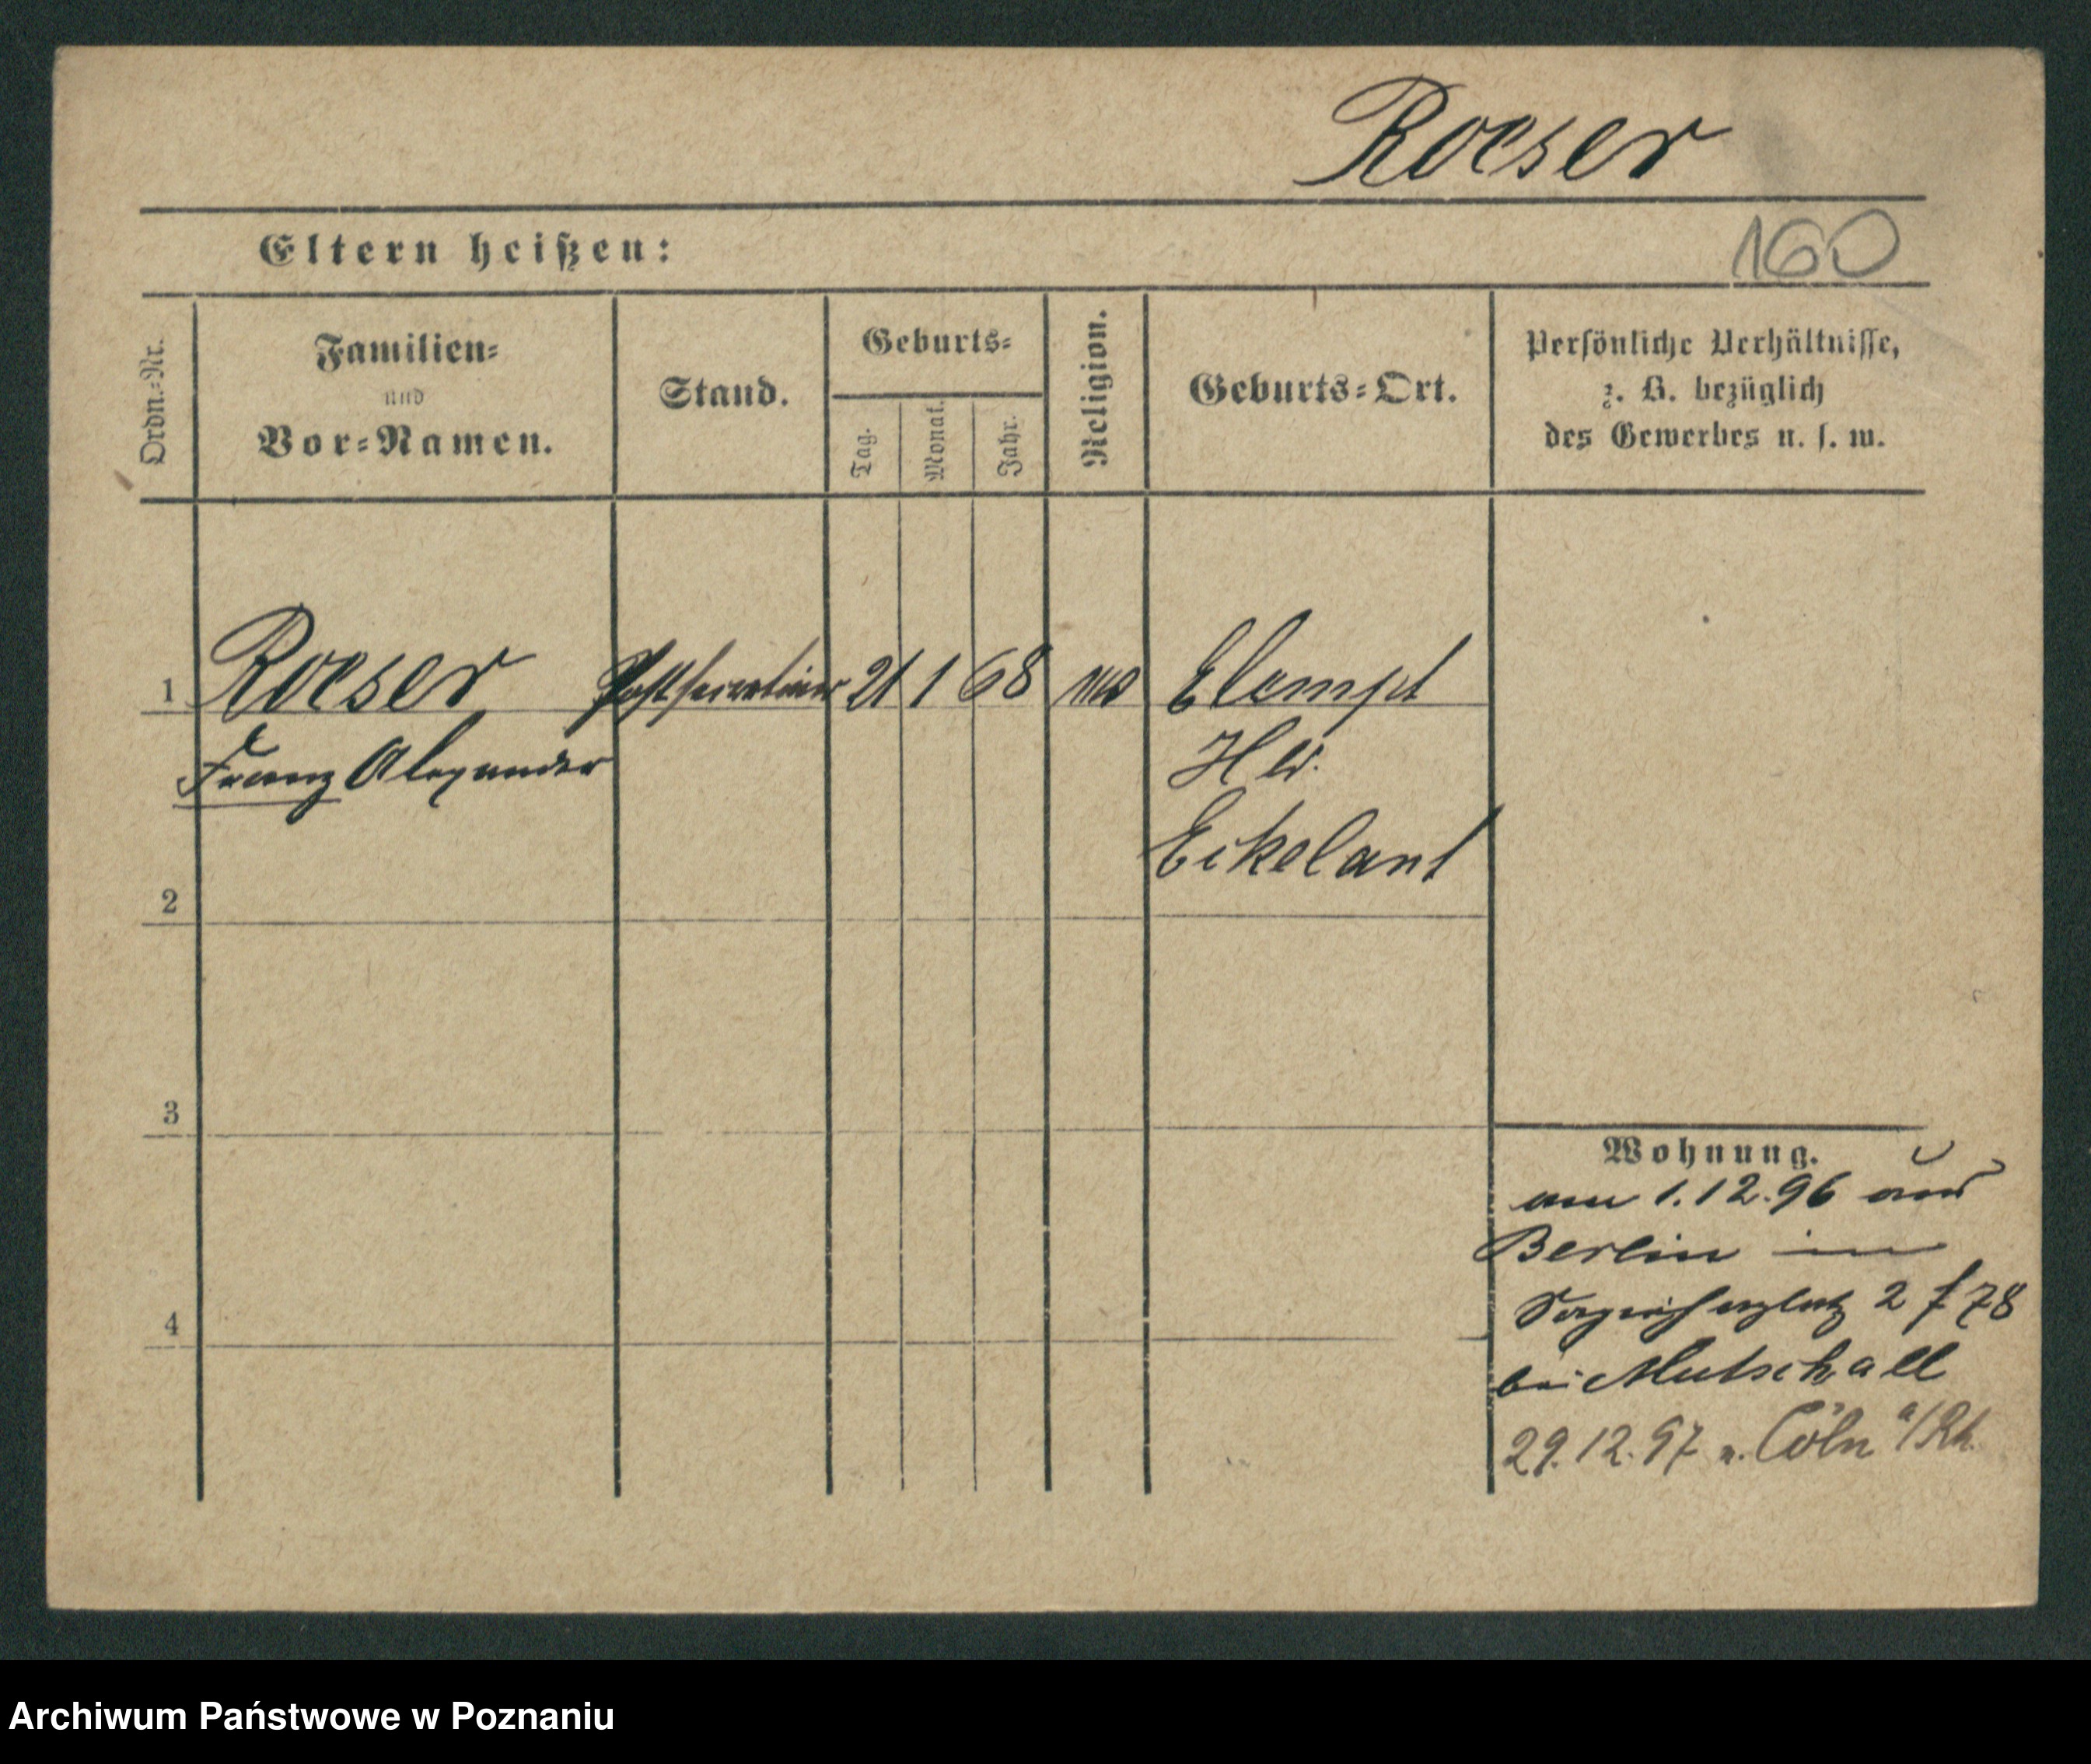 Roeser
Eltern heißen:
160
Ordn.-Nr.
Familien-
und
Vor-Namen.
Stand.
Geburts-
Tag.
Monat.
Jahr.
Religion.
Geburts-Ort.
Persönliche Verhältnisse,
z. B. bezüglich
des Gewerbes u. s. w.
1 Roeser 21 1 68 Elempt
Franz Alexander
Eikelant
2
3
4
Wohnung.
am 1.12.96 aus
Berlin in
2 78
bei Mutschall
29.12.97 n. Cöln a/Rh.
Archiwum Państwowe w Poznaniu